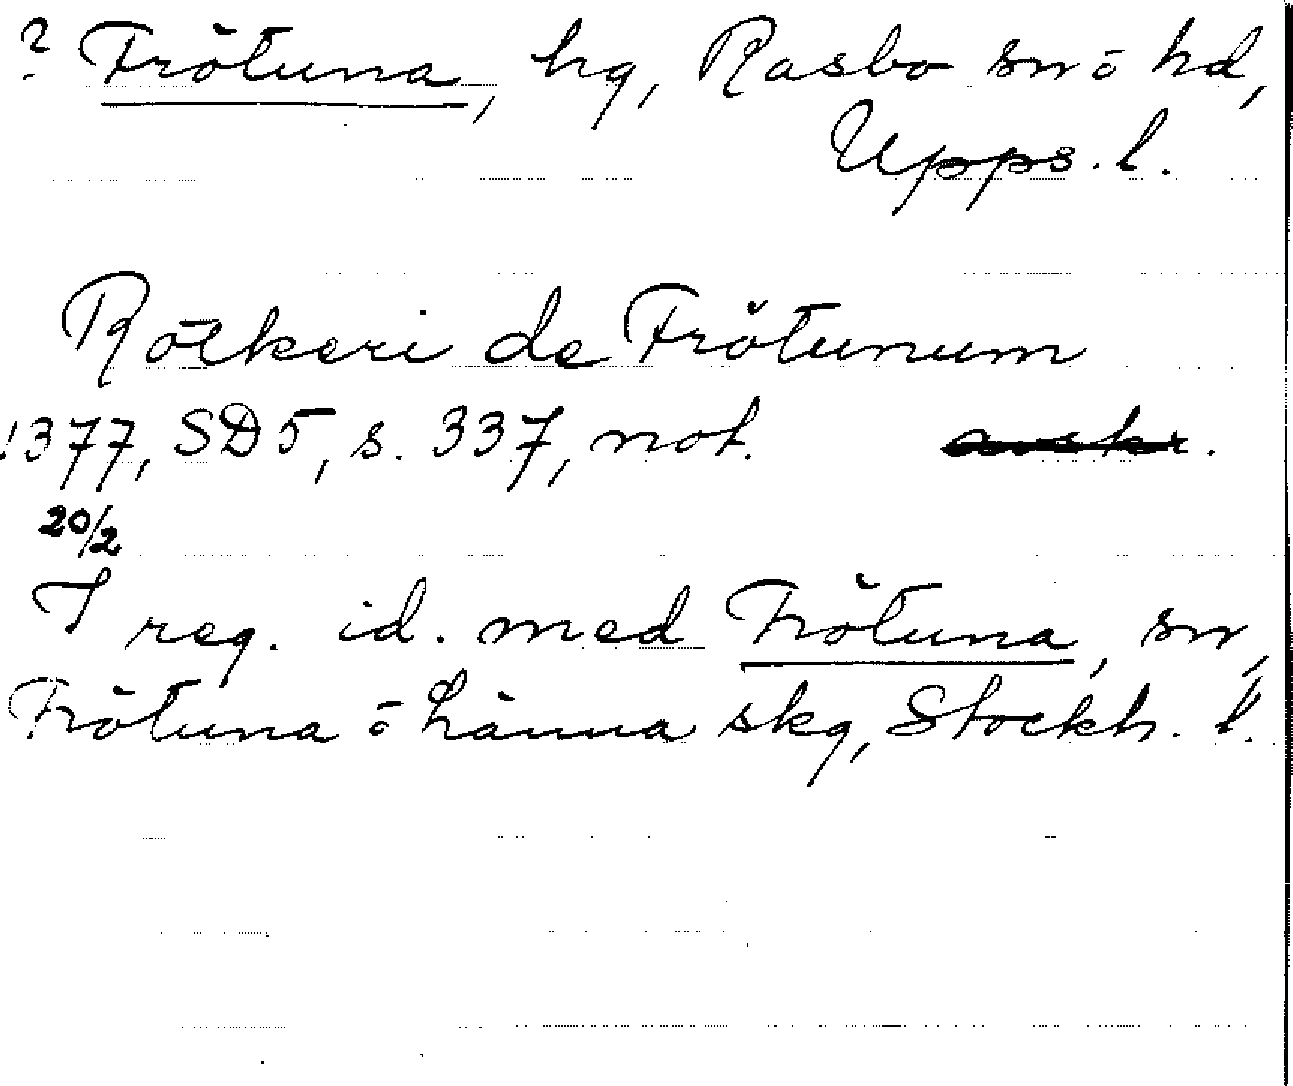 ? Frötuna, hg, Rasbo sn o hd,
Upps. l.
Rötkeri de Frötunum
1377, SD 5, s. 337, not.
20/2
I reg. id. med Frötuna, sn,
Frötuna o Länna skg, Stockh. l.